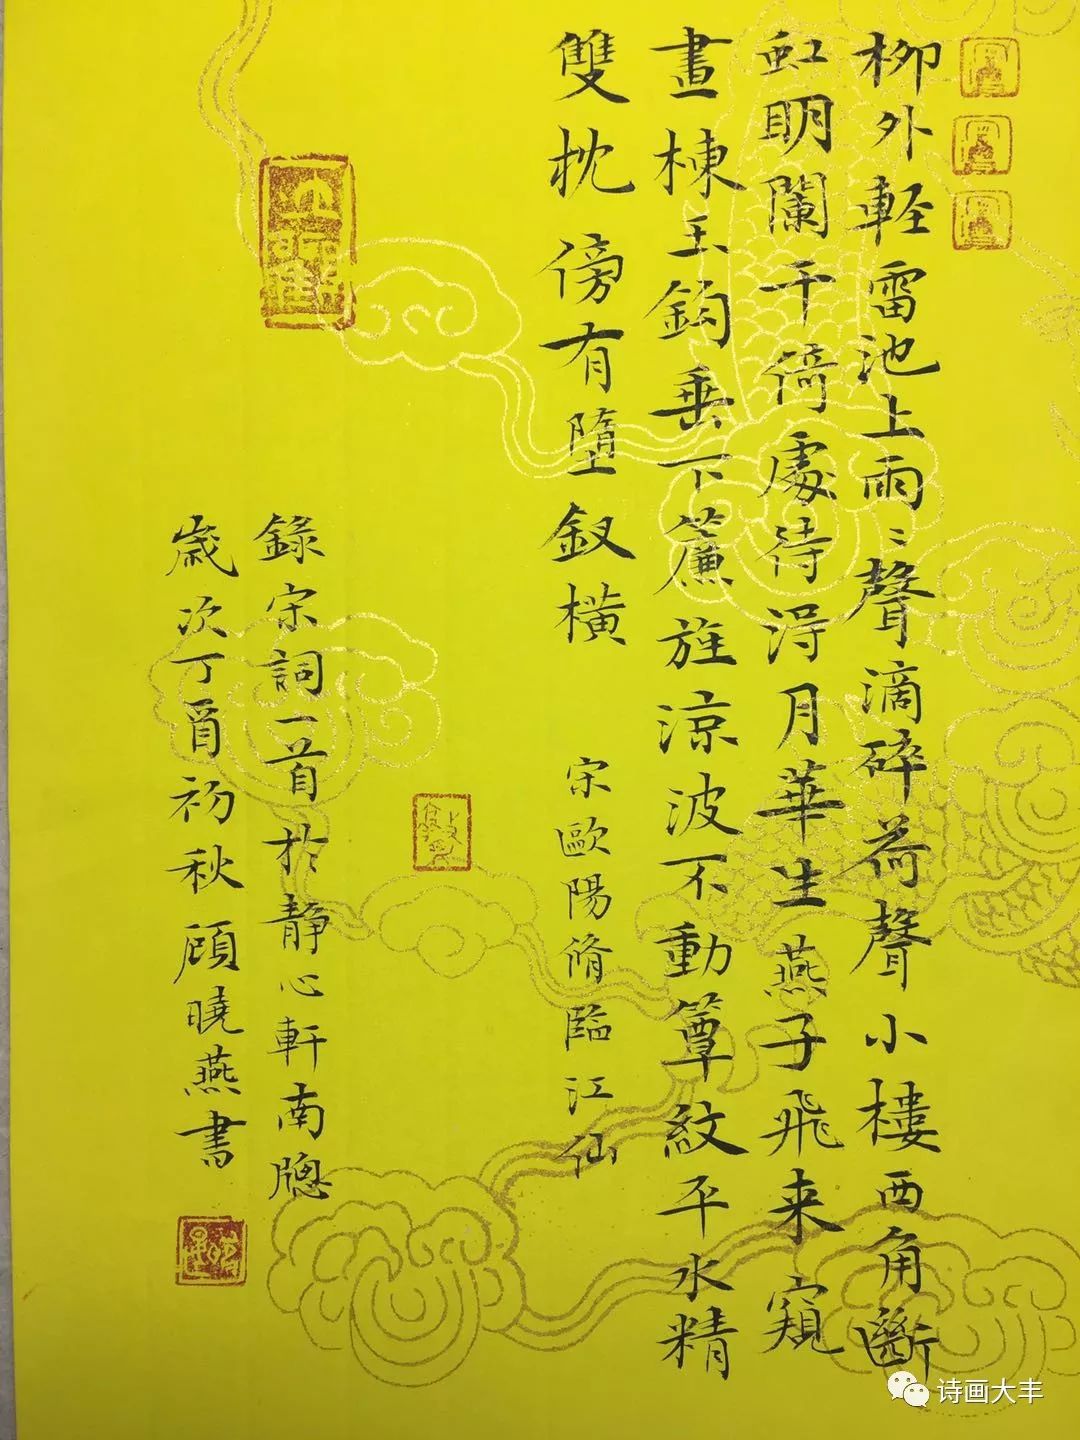 柳外軽雷池上雨〻聲滴碎荷聲小樓西角斷
虹明闌干倚處待得月華生燕子飛来窺
畫棟玉鈎垂下簾旌涼波不動簟紋平水精
雙枕傍有墮釵橫
宋歐陽脩臨江仙
錄宋詞一首於靜心軒南牕
歲次丁酉初秋顧曉燕書
诗画大丰